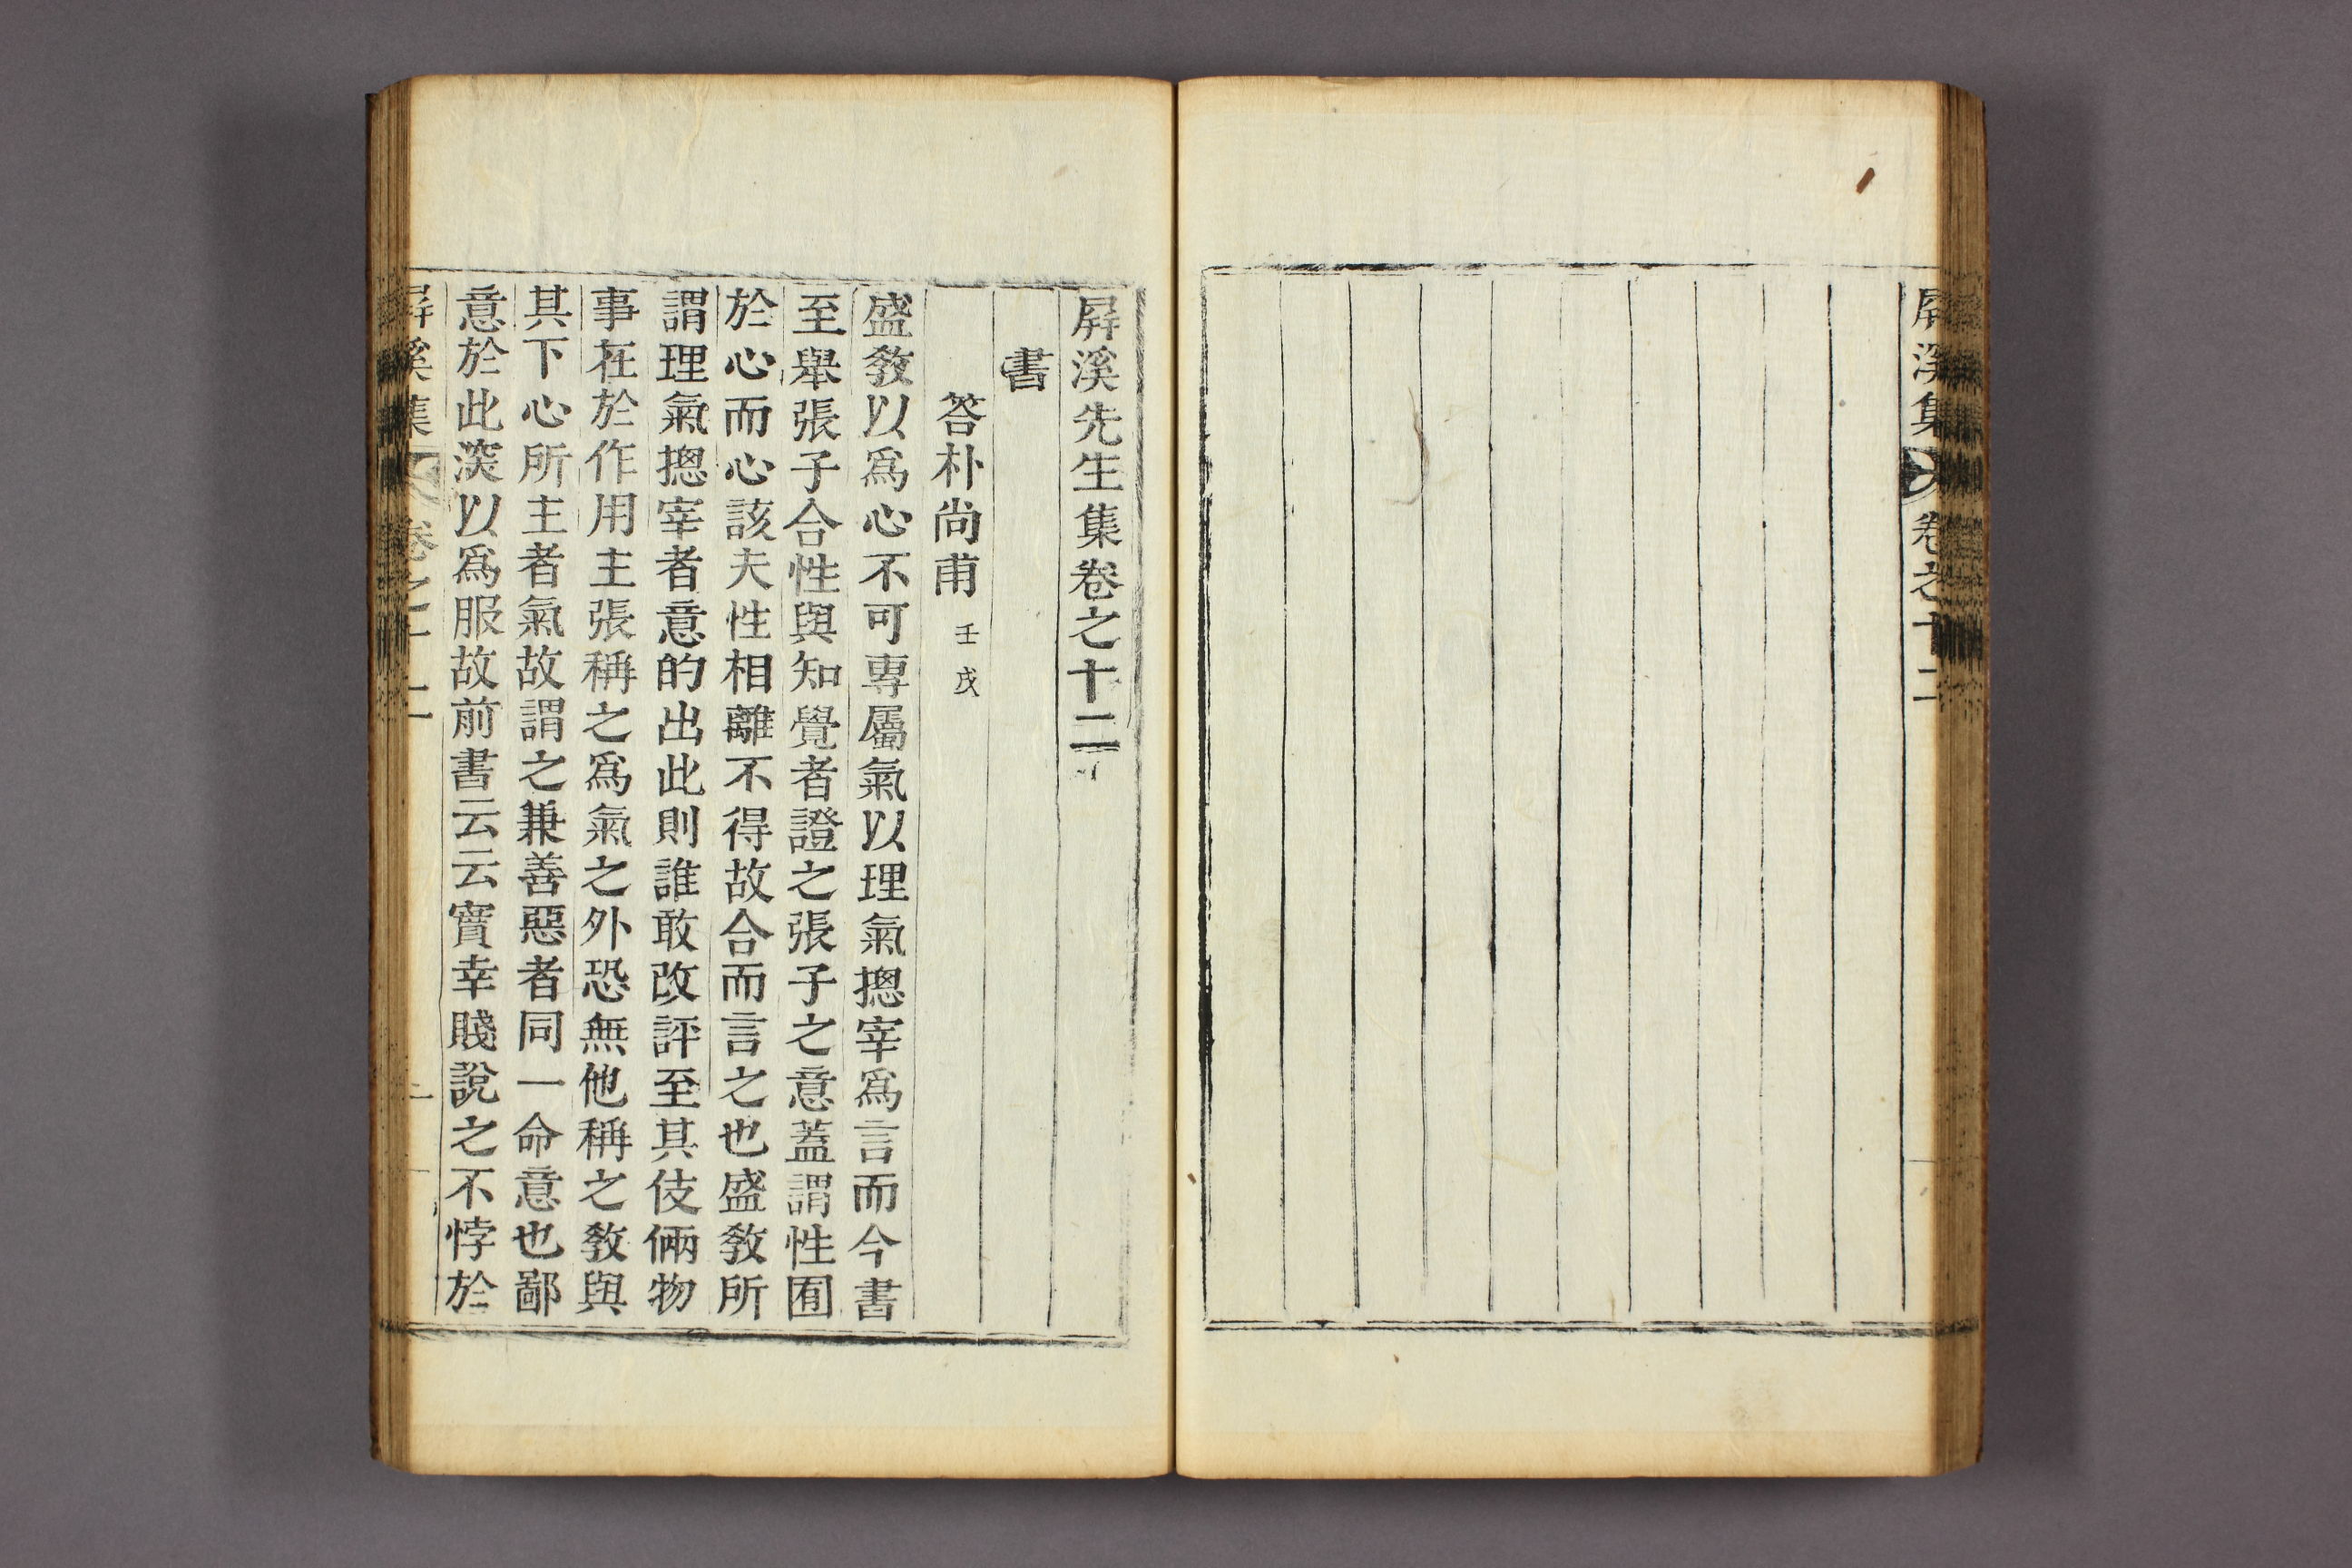 屛溪集 卷之十二
屛溪先生集卷之十二
書
答朴尙甫 壬戌
盛敎以爲心不可專屬氣以理氣摠宰爲言而今書
至舉張子合性與知覺者證之張子之意蓋謂性囿
於心而心該夫性相離不得故合而言之也盛敎所
謂理氣摠宰者意的出此則誰敢改評至其伎倆物
事在於作用主張稱之爲氣之外恐無他稱之敎與
其下心所主者氣故謂之兼善惡者同一命意也鄙
意於此深以爲服故前書云云實幸賤說之不悖於
屛溪集 卷之十二 一